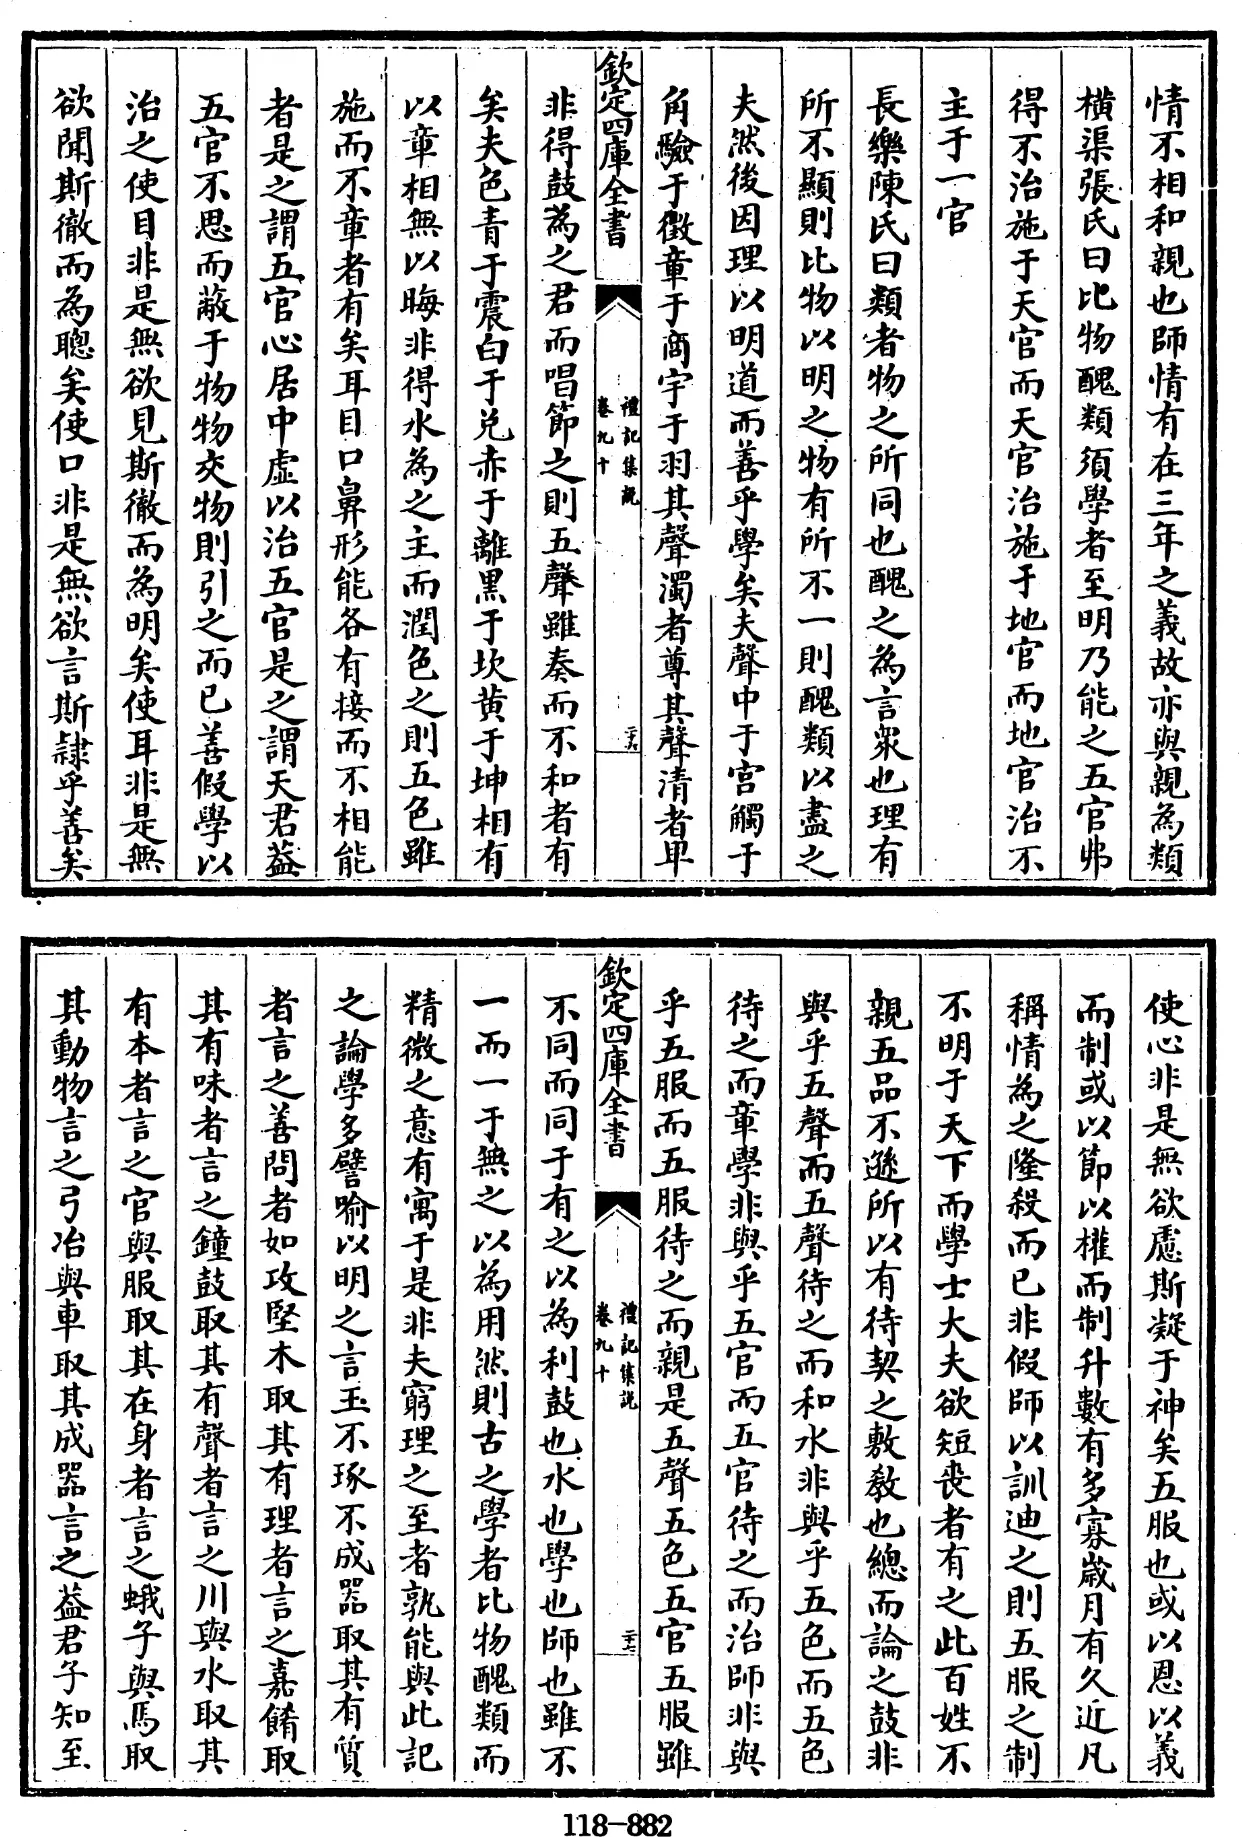 情不相和親也師情有在三年之義故亦與親為類
橫渠張氏曰比物醜類須學者至明乃能之五官弗
得不治施于天官而天官治施于地官而地官治不
主于一官
長樂陳氏曰類者物之所同也醜之為言衆也理有
所不顯則比物以明之物有所不一則醜類以盡之
夫然後因理以明道而善乎學矣夫聲中于宫觸于
角驗于徵章于商宇于羽其聲濁者尊其聲清者卑
欽定四庫全書
禮記集説
卷九十
二十六
非得鼓為之君而唱節之則五聲雖奏而不和者有
矣夫色青于震白于兑赤于離黑于坎黄于坤相有
以章相無以晦非得水為之主而潤色之則五色雖
施而不章者有矣耳目口鼻形能各有接而不相能
者是之謂五官心居中虛以治五官是之謂天君葢
五官不思而蔽于物物交物則引之而已善假學以
治之使目非是無欲見斯徹而為明矣使耳非是無
欲聞斯徹而為聰矣使口非是無欲言斯隷乎善矣
使心非是無欲慮斯凝于神矣五服也或以恩以義
而制或以節以權而制升數有多寡嵗月有久近凡
稱情為之隆殺而已非假師以訓迪之則五服之制
不明于天下而學士大夫欲短喪者有之此百姓不
親五品不遜所以有待契之敷教也總而論之鼓非
與乎五聲而五聲待之而和水非與乎五色而五色
待之而章學非與乎五官而五官待之而治師非與
乎五服而五服待之而親是五聲五色五官五服雖
欽定四庫全書
禮記集説
卷九十
二十七
不同而同于有之以為利鼓也水也學也師也雖不
一而一于無之以為用然則古之學者比物醜類而
精微之意有寓于是非夫窮理之至者孰能與此記
之論學多譬喻以明之言玉不琢不成器取其有質
者言之善問者如攻堅木取其有理者言之嘉餚取
其有味者言之鐘鼓取其有聲者言之川與水取其
有本者言之官與服取其在身者言之蛾子與馬取
其動物言之弓冶與車取其成器言之葢君子知至
118-882